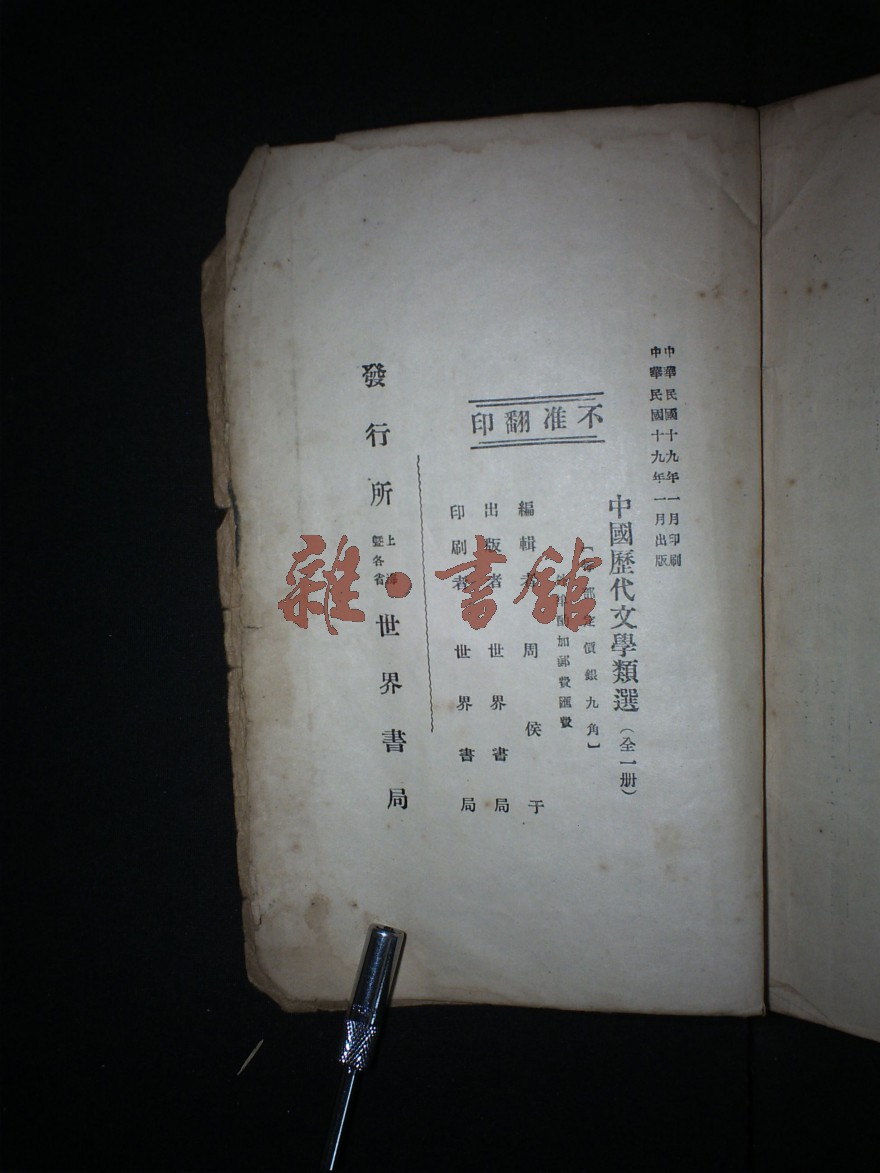 中華民國十九年一月印刷
中華民國十九年一月出版
中國歷代文學類選（全一册）
部定價銀九角】
加郵費匯費
不准翻印
編輯者 周侯于
出版者 世界書局
印刷者 世界書局
發行所 上海暨各省 世界書局
雜·書館